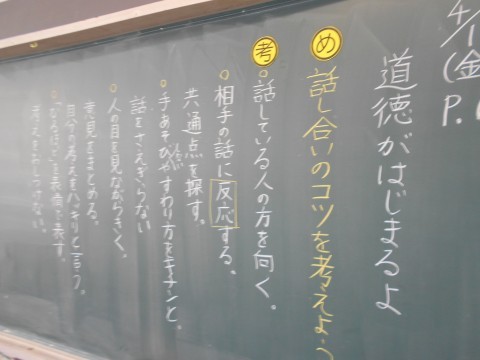 4/1
(金
P.
道徳がはじまるよ
め 話し合いのコツを考えよう
考 話している人の方を向く。
相手の話に反応する。
共通点を探す。
手あそびやすわり方をキチンと。
話をさえぎらない
人の目を見ながらきく。
意見をまとめる。
自分の考えをハッキリと言う。
を表情で表す。
考えをおしつけない。